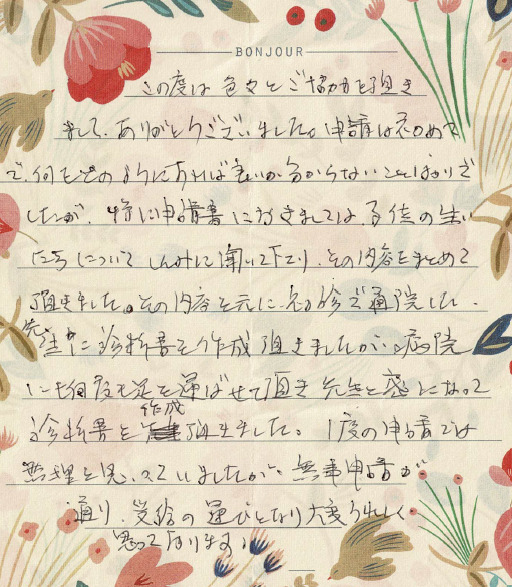 BONJOUR
この度は色々とご協力を頂き
まして、ありがとうございました。申請は初めて
で、何をどのようにすれば良いか分からないことばかりで
したが、特に申請書に付きましては、私の生い
立ちについてしんみに聞いて下さり、その内容をまとめて
頂きました。その内容を元に初診で通院した
先生に診断書を作成頂きましたが、病院
にも何度も足を運ばせて頂き先生と密になって
診断書を作成頂きました。1度の申請では
無理と思っていましたが、無事申請が
通り、受給の運びとなり大変うれしく
思っております。